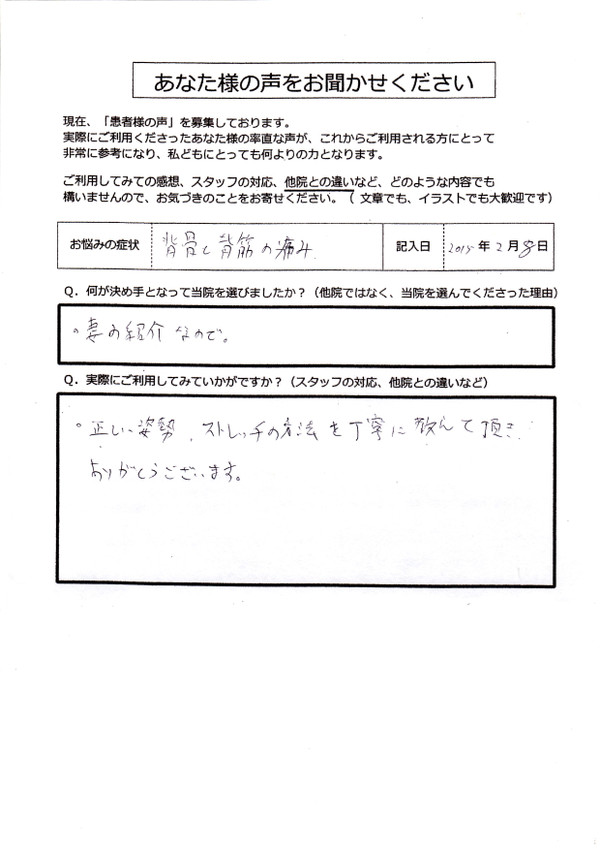 あなた様の声をお聞かせください
現在、「患者様の声」を募集しております。
実際にご利用くださったあなた様の率直な声が、これからご利用される方にとって
非常に参考になり、私どもにとっても何よりの力となります。
ご利用してみての感想、スタッフの対応、他院との違いなど、どのような内容でも
構いませんので、お気づきのことをお寄せください。（文章でも、イラストでも大歓迎です）
お悩みの症状 背骨と背筋の痛み 記入日 2015年2月8日
Q．何が決め手となって当院を選びましたか？（他院ではなく、当院を選んでくださった理由）
。妻の紹介なので。
Q．実際にご利用してみていかがですか？（スタッフの対応、他院との違いなど）
。正しい姿勢、ストレッチの方法を丁寧に教えて頂き
ありがとうございます。